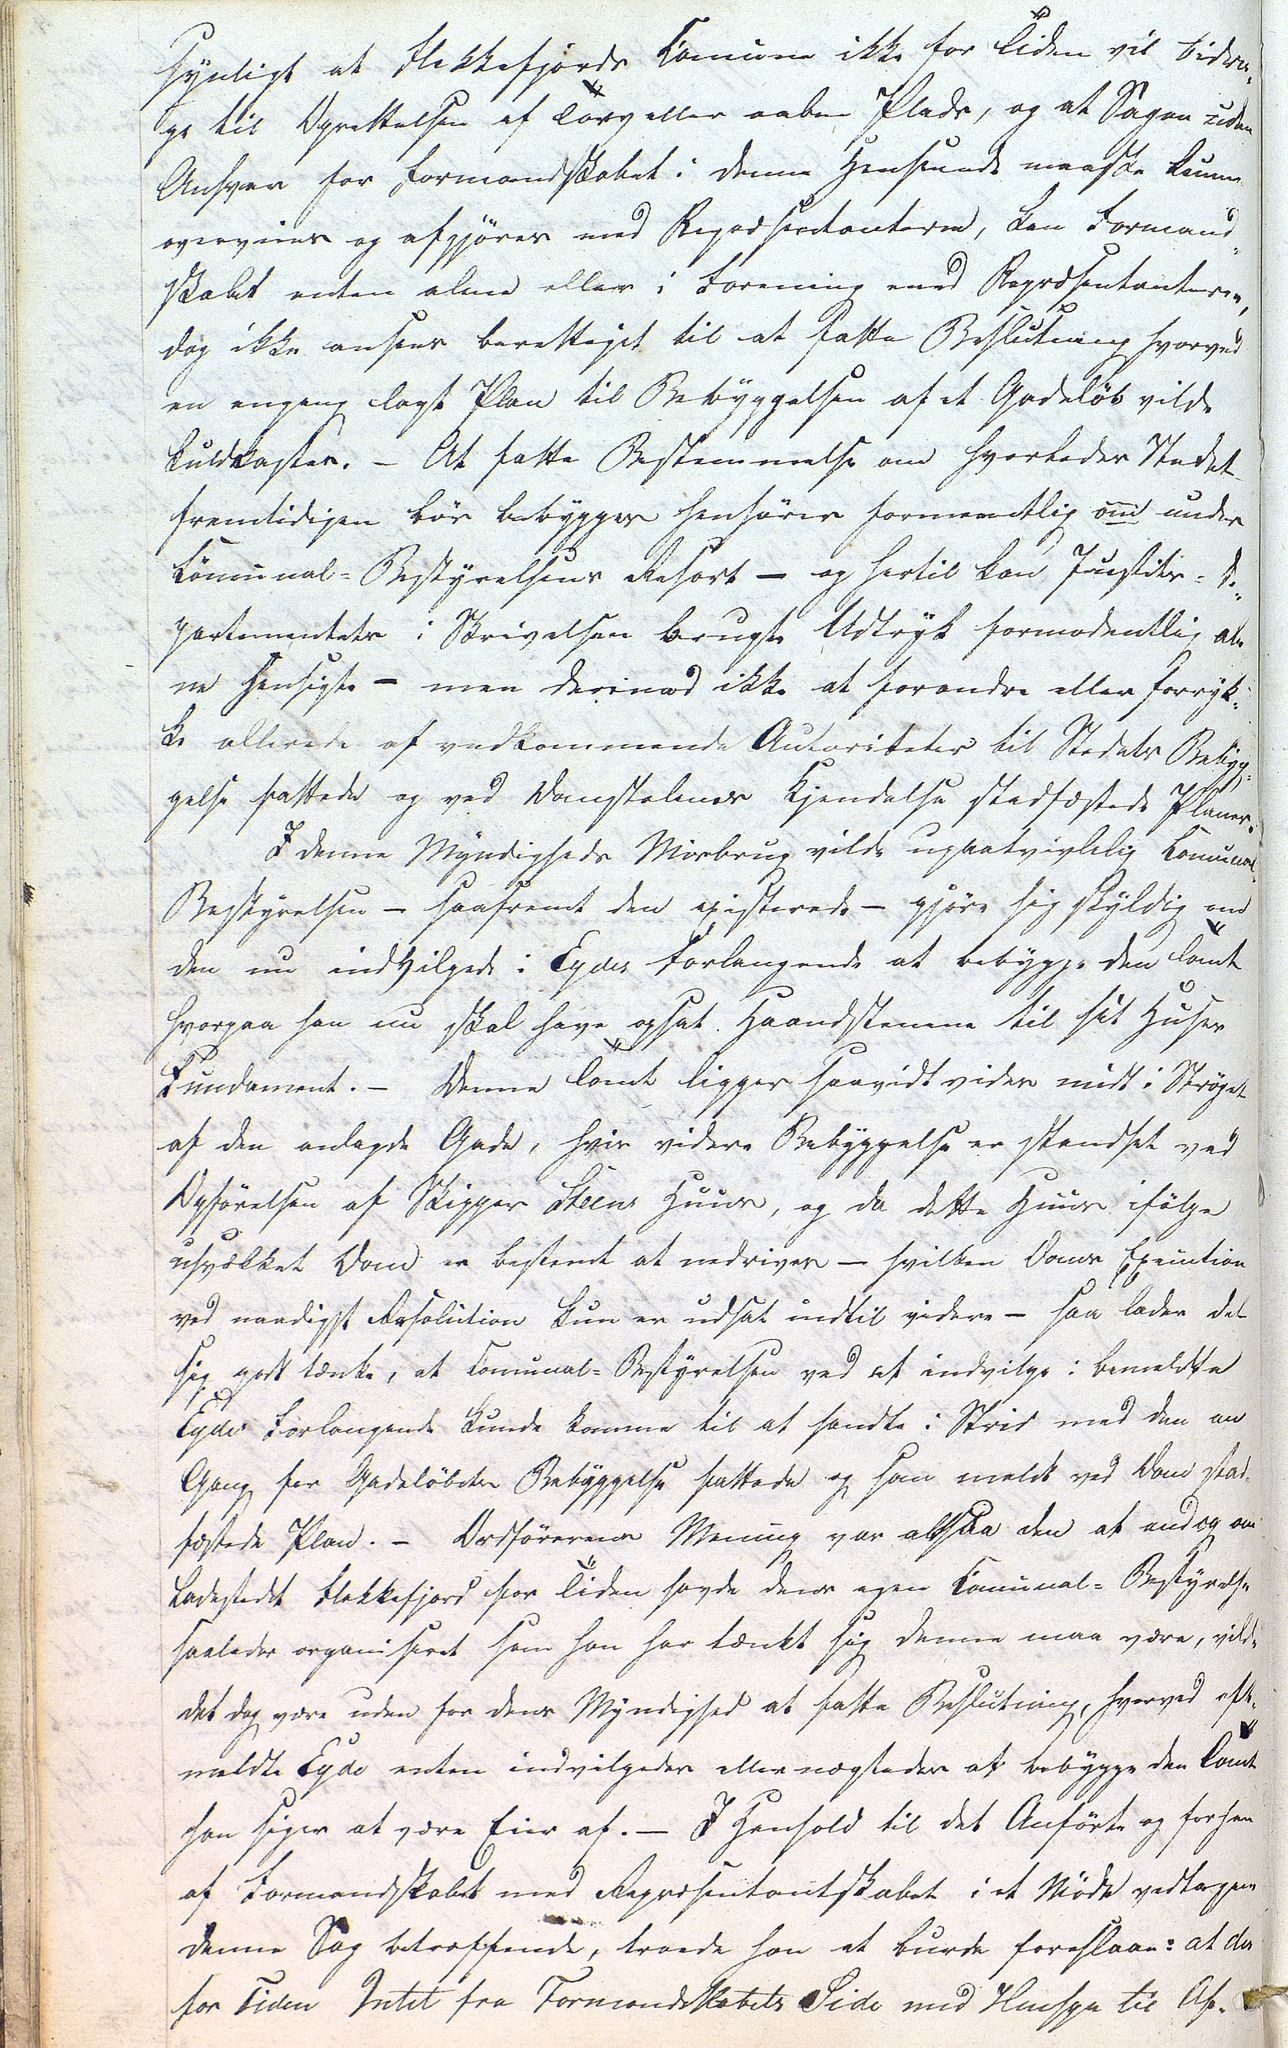 synligt at Flekkefjords Comune ikke for Tiden vil bidra-
ge til Oprettelsen af Torv eller aaben Plads, og at Sagen uden
Ansvar for Formandskabet i denne Henseende maaske kunne
overveies og afgjöres med Repræsentanterne, kan Formand-
skabet enten alene eller i Forening med Repræsentanterne,
dog ikke ansees berettiget til at fatte Beslutning hvorved
en engang lagt Plan til Bebyggelsen af et Gadelöb vilde
kuldkastes. – At fatte Bestemmelse om hvorledes Stedet
fremtidigen bör bebygges henhörer formeentlig om under
Comunal-Bestyrelsens Resort – og hertil kan Justits-De-
partementets i Skrivelsen brugte Udtryk formodentlig ale-
ne hensigte – men derimod ikke at forandre eller forryk-
ke allerede af vedkommende Autoriteter til Stedets Bebyg-
gelse fattede og ved Domstolenes Kjendelse stadfæstede Planer.
I denne Myndigheds Misbrug vilde upaatvivlelig Comunal-
Bestyrelsen – saafremt den existerede – gjöre sig skyldig om
den nu indvilgede i Eydes Forlangende at bebygge den Tomt
hvorpaa han nu skal have opsat Haandstenene til sit Huses
Fundament. – Denne Tomt ligger saavidt vides midt i Ströget
af den anlagde Gade, hvis videre Bebyggelse er standset ved
Opförelsen af Skipper Steens Huus, og da dette Huus ifölge
usvækket Dom er bestemt at nedrives – hvilken Doms Execution
ved naadigst Resolution kun er udsat indtil videre – saa lader det
sig godt tænke, at Comunal-Bestyrelsen ved at indvilge i bemeldte
Eydes Forlangende kunde komme til at handle i Strid med den en
Gang for Gadelöbets Bebyggelse fattede og som meldt ved Dom stad-
fæstede Plan. – Ordförerens Mening var altsaa den at endog om
Ladestedt Flekkefjord for Tiden havde dens egen Comunal-Bestyrelse
saaledes organiseret som han har tænkt sig denne maa være, vilde
det dog være uden for dens Myndighed at fatte Beslutning, hvorved oft-
meldte Eyde enten indvilgedes eller nægtedes at bebygge den Tomt
han siger at være Eier af. – I Henhold til det Anförte og forhen
af Formandskabet med Repræsentantskabet i et Möde vedtagen
denne Sag betræffende, troede han at burde foreslaae: at der
for Tiden Intet fra Formandskabets Side med Hensyn til Af-